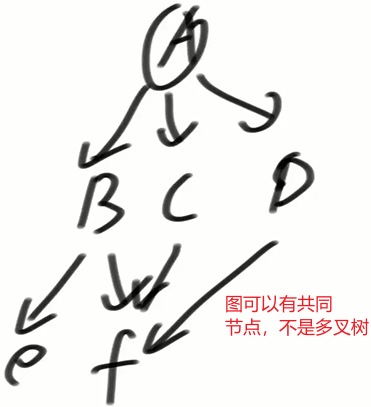 A
B C D
e f
图可以有共同
节点，不是多叉树